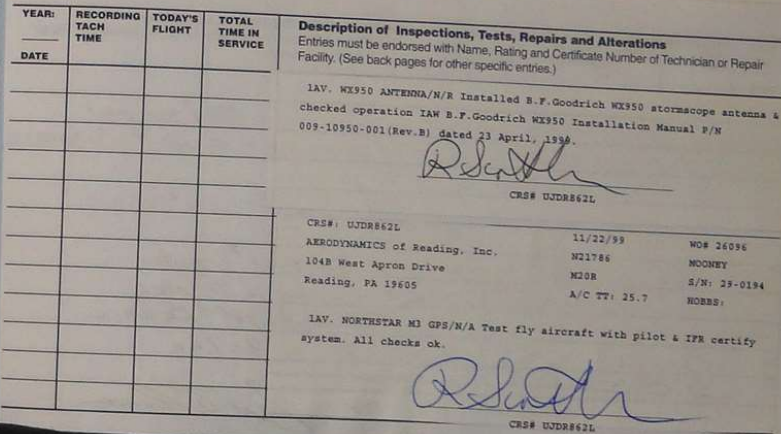 YEAR:
DATE
RECORDING
TACH
TIME
TODAY'S
FLIGHT
TOTAL
TIME IN
SERVICE
Description of Inspections, Tests, Repairs and Alterations
Entries must be endorsed with Name, Rating and Certificate Number of Technician or Repair
Facility. (See back pages for other specific entries.)
1AV. WX950 ANTENNA/N/R Installed B.F.Goodrich WX950 stormscope antenna &
checked operation IAW B.F.Goodrich WX950 Installation Manual P/N
009-10950-001(Rev.B) dated 23 April,
CRS# UJDR862L
CRS#: UJDR862L 11/22/99 WO# 26096
AERODYNAMICS of Reading, Inc. N21786 MOONEY
104B West Apron Drive M20R S/N: 29-0194
Reading, PA 19605 A/C TT: 25.7 HOBBS:
1AV. NORTHSTAR M3 GPS/N/A Test fly aircraft with pilot & IFR certify
system. All checks ok.
CRS# UJDR862L